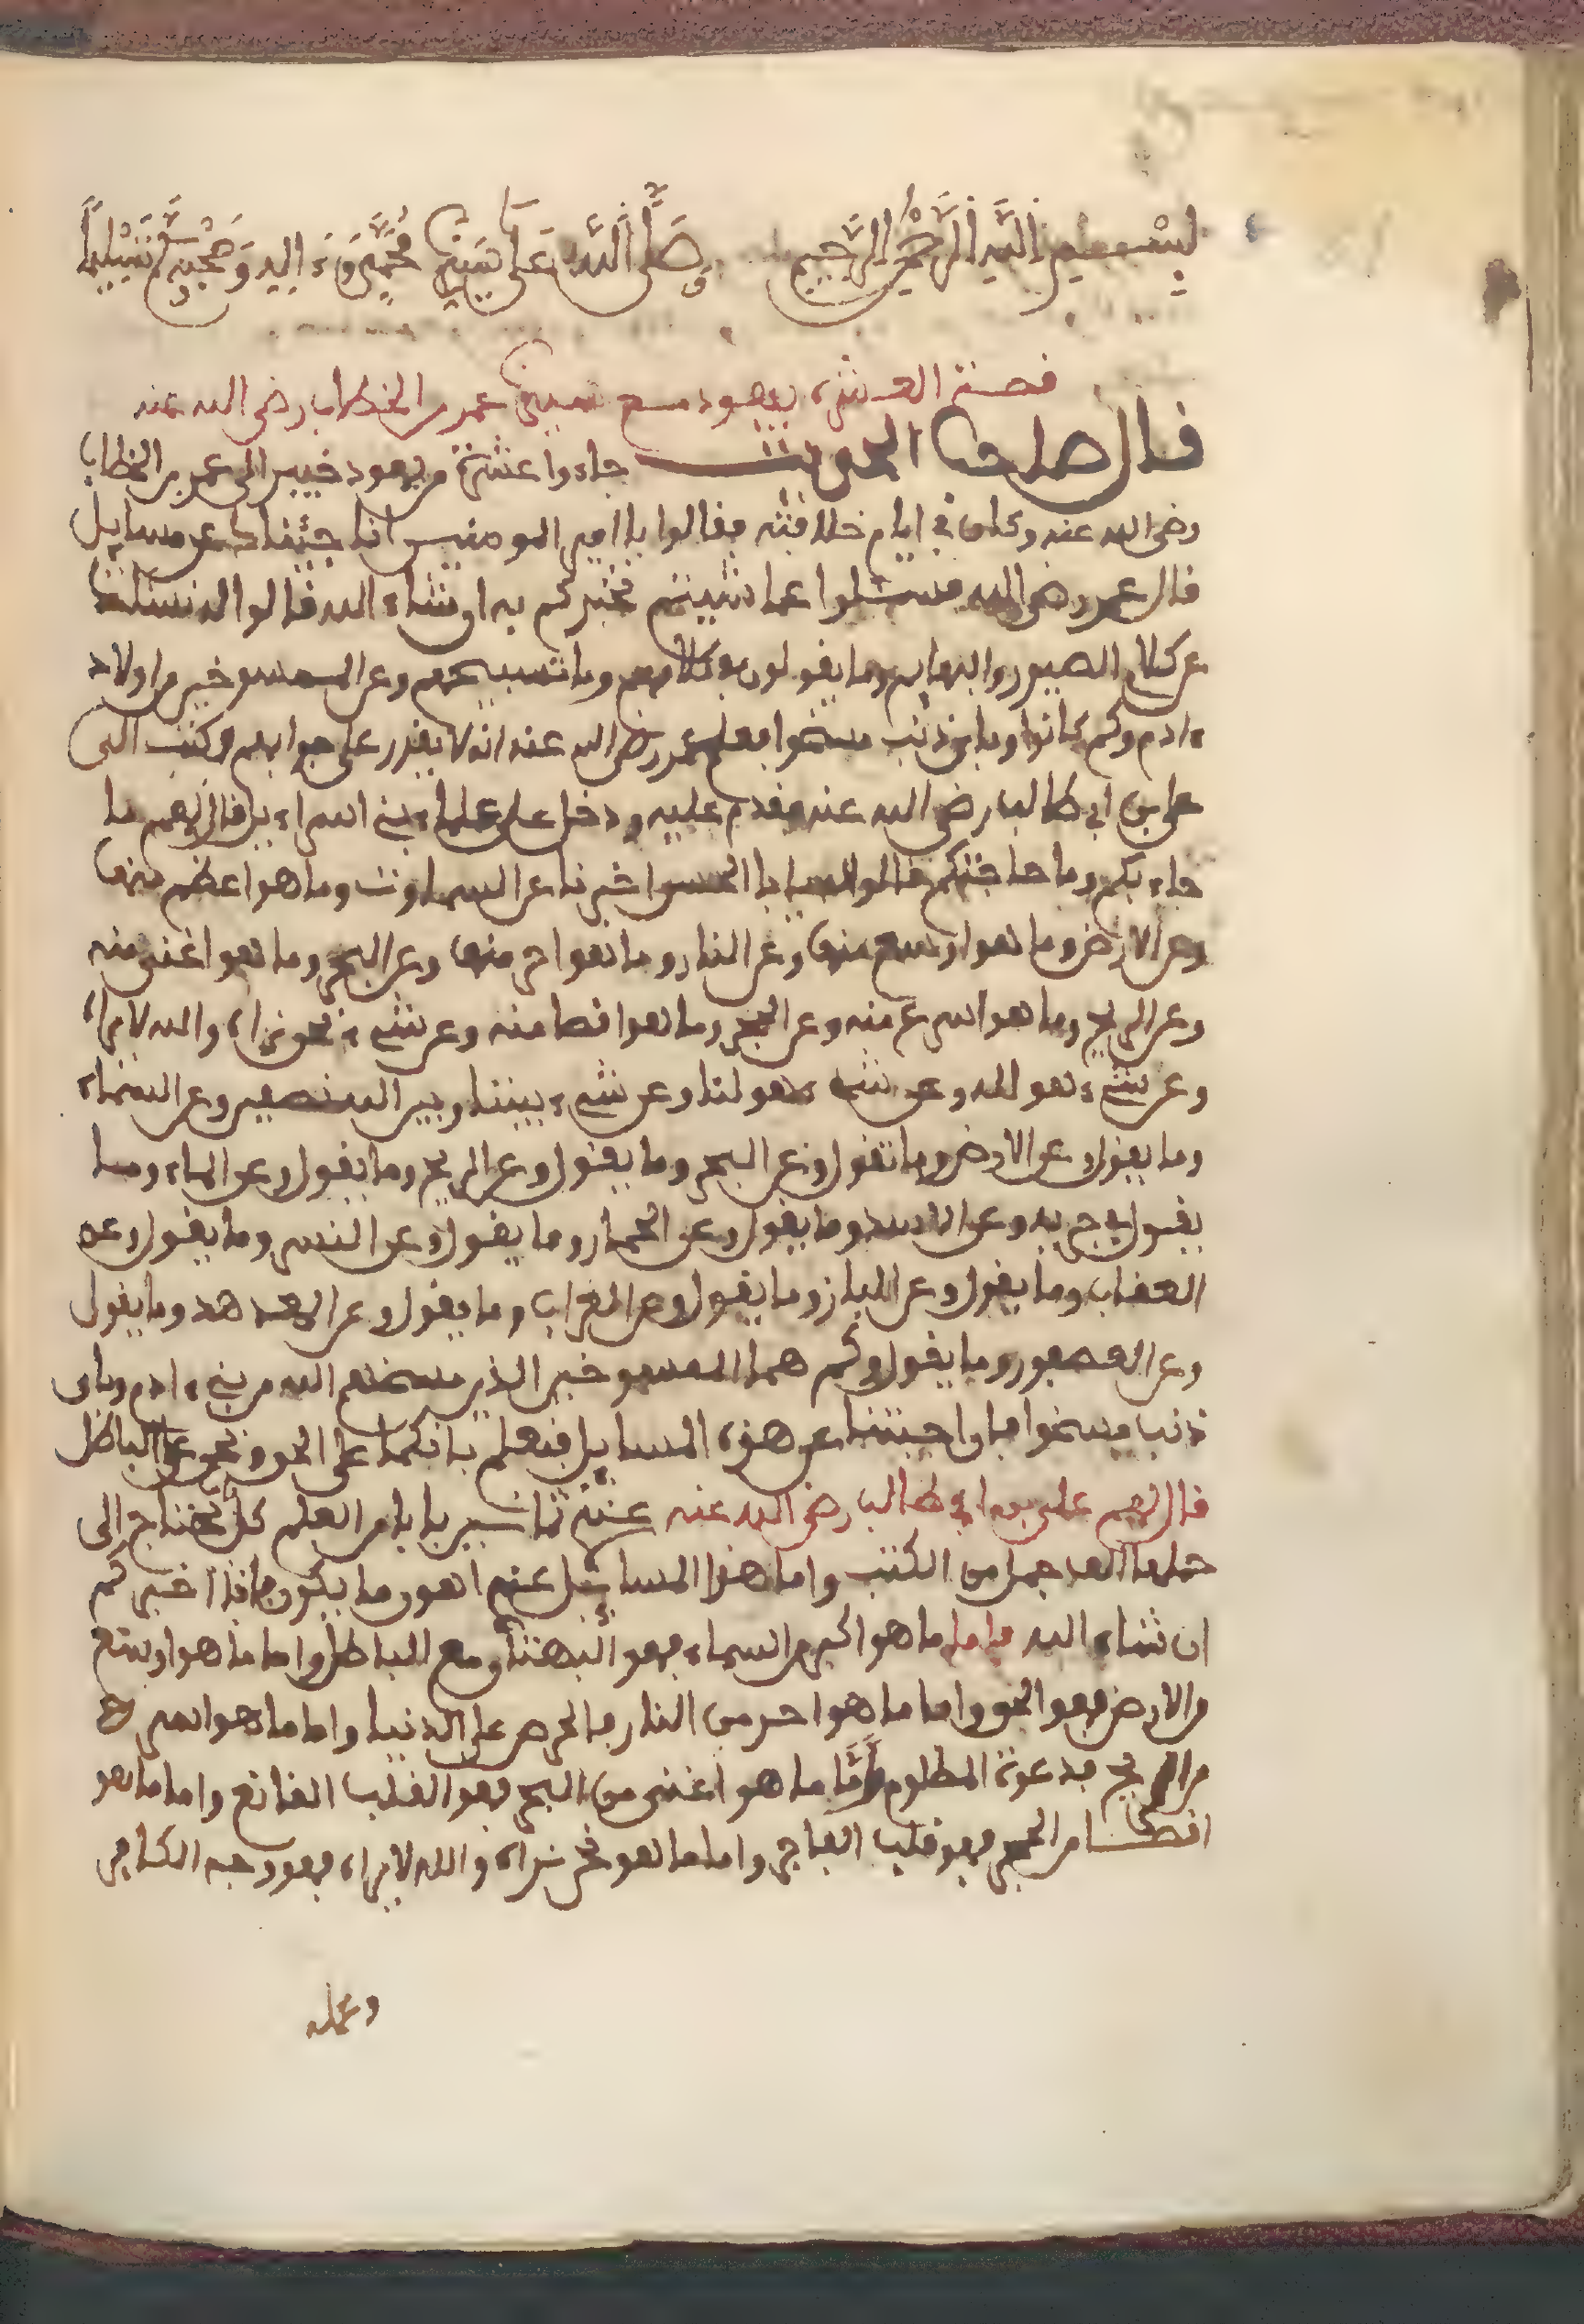 بِسْمِ اللَّهِ الرَّحْمَٰنِ الرَّحِيمِ وَصَلَّى اللَّهُ عَلَى سَيِّدِنَا مُحَمَّدٍ وَءَالِهِ وَصَحْبِهِ وَسَلَّمَ تَسْلِيمًا
قصة العشرة يهود مع سيدنا عمر بن الخطاب رضي الله عنه
قال صاحب الحديث جاءوا عشرة من يهود خيبر الى عمر بن الخطاب
رضي الله عنه وكان في ايام خلافته فقالوا يا امير المومنين انا جيناك عن مسايل
قال عمر رضي الله فسئلوا عما شيتم نخبركم به ان شاء الله قالوا له نسئلك
عن كلام الطيور والبهايم وما يقولون في كلامهم وما تسبيحهم وعن المسوخين من اولاد
ءادم وكم كانوا وباي ذنب مسخوا فعلم عمر رضي الله عنه انه لا يقدر على جوابهم فكتب الى
علي بن ابي طالب رضي الله عنه فقدم عليه ودخل على علماء بني اسراءيل فقال لهم ما
جاء بكم وما حاجتكم قالوا يا ابا الحسن اخبرنا عن السماوت وما هو اعظم منها
وعن الارض وما هو اوسع منها وعن النار وما هو احر منها وعن البحر وما هو اغنى منه
وعن الريح وما هو اسرع منه وعن الحجر وما هو اقصا منه وعن شيء نحن نراه والله لا يراه
وعن شيء هو لله وعن شيء هو لنا وعن شيء بيننا وبين الله نصفين وعن السماء
وما يقول وعن الارض وما تقول وعن البحر وما يقول وعن الريح وما يقول وعن الماء وما
يقول في جريه وعن الاسد وما يقول وعن الحمار وما يقول وعن النسر وما يقول وعن
العقاب وما يقول وعن الباز وما يقول وعن الغراب وما يقول وعن الهدهد وما يقول
وعن العصفور وما يقول وكم هما المسوخين الذين مسخهم الله من بني ءادم وباي
ذنب مسخوا فان اجبتنا عن هذه المسايل فنعلم بانكما على الحق ونحن على الباطل
قال لهم علي بن ابي طالب رضي الله عنه عندنا بابا من العلم كل يحتاج الى
حملها الف جمل من الكتب واما هذا المسايل عنهم اهون ما يكون فانا اخبركم
ان شاء الله فاما ما هو اكبر من السماء فهو البهتان مع الباطل واما ما هو اوسع
من الارض فهو الحق واما ما هو احر من النار فالحرص على الدنيا واما ما هو اسرع
من الريح فدعوة المظلوم وَأمَّا ما هو اغنى من البحر فهو القلب القانع واما ما هو
اقصا من الحجر فهو قلب الفاجر واما ما هو نحن نراه والله لا يراه فهو وجه الكافر
وعمله